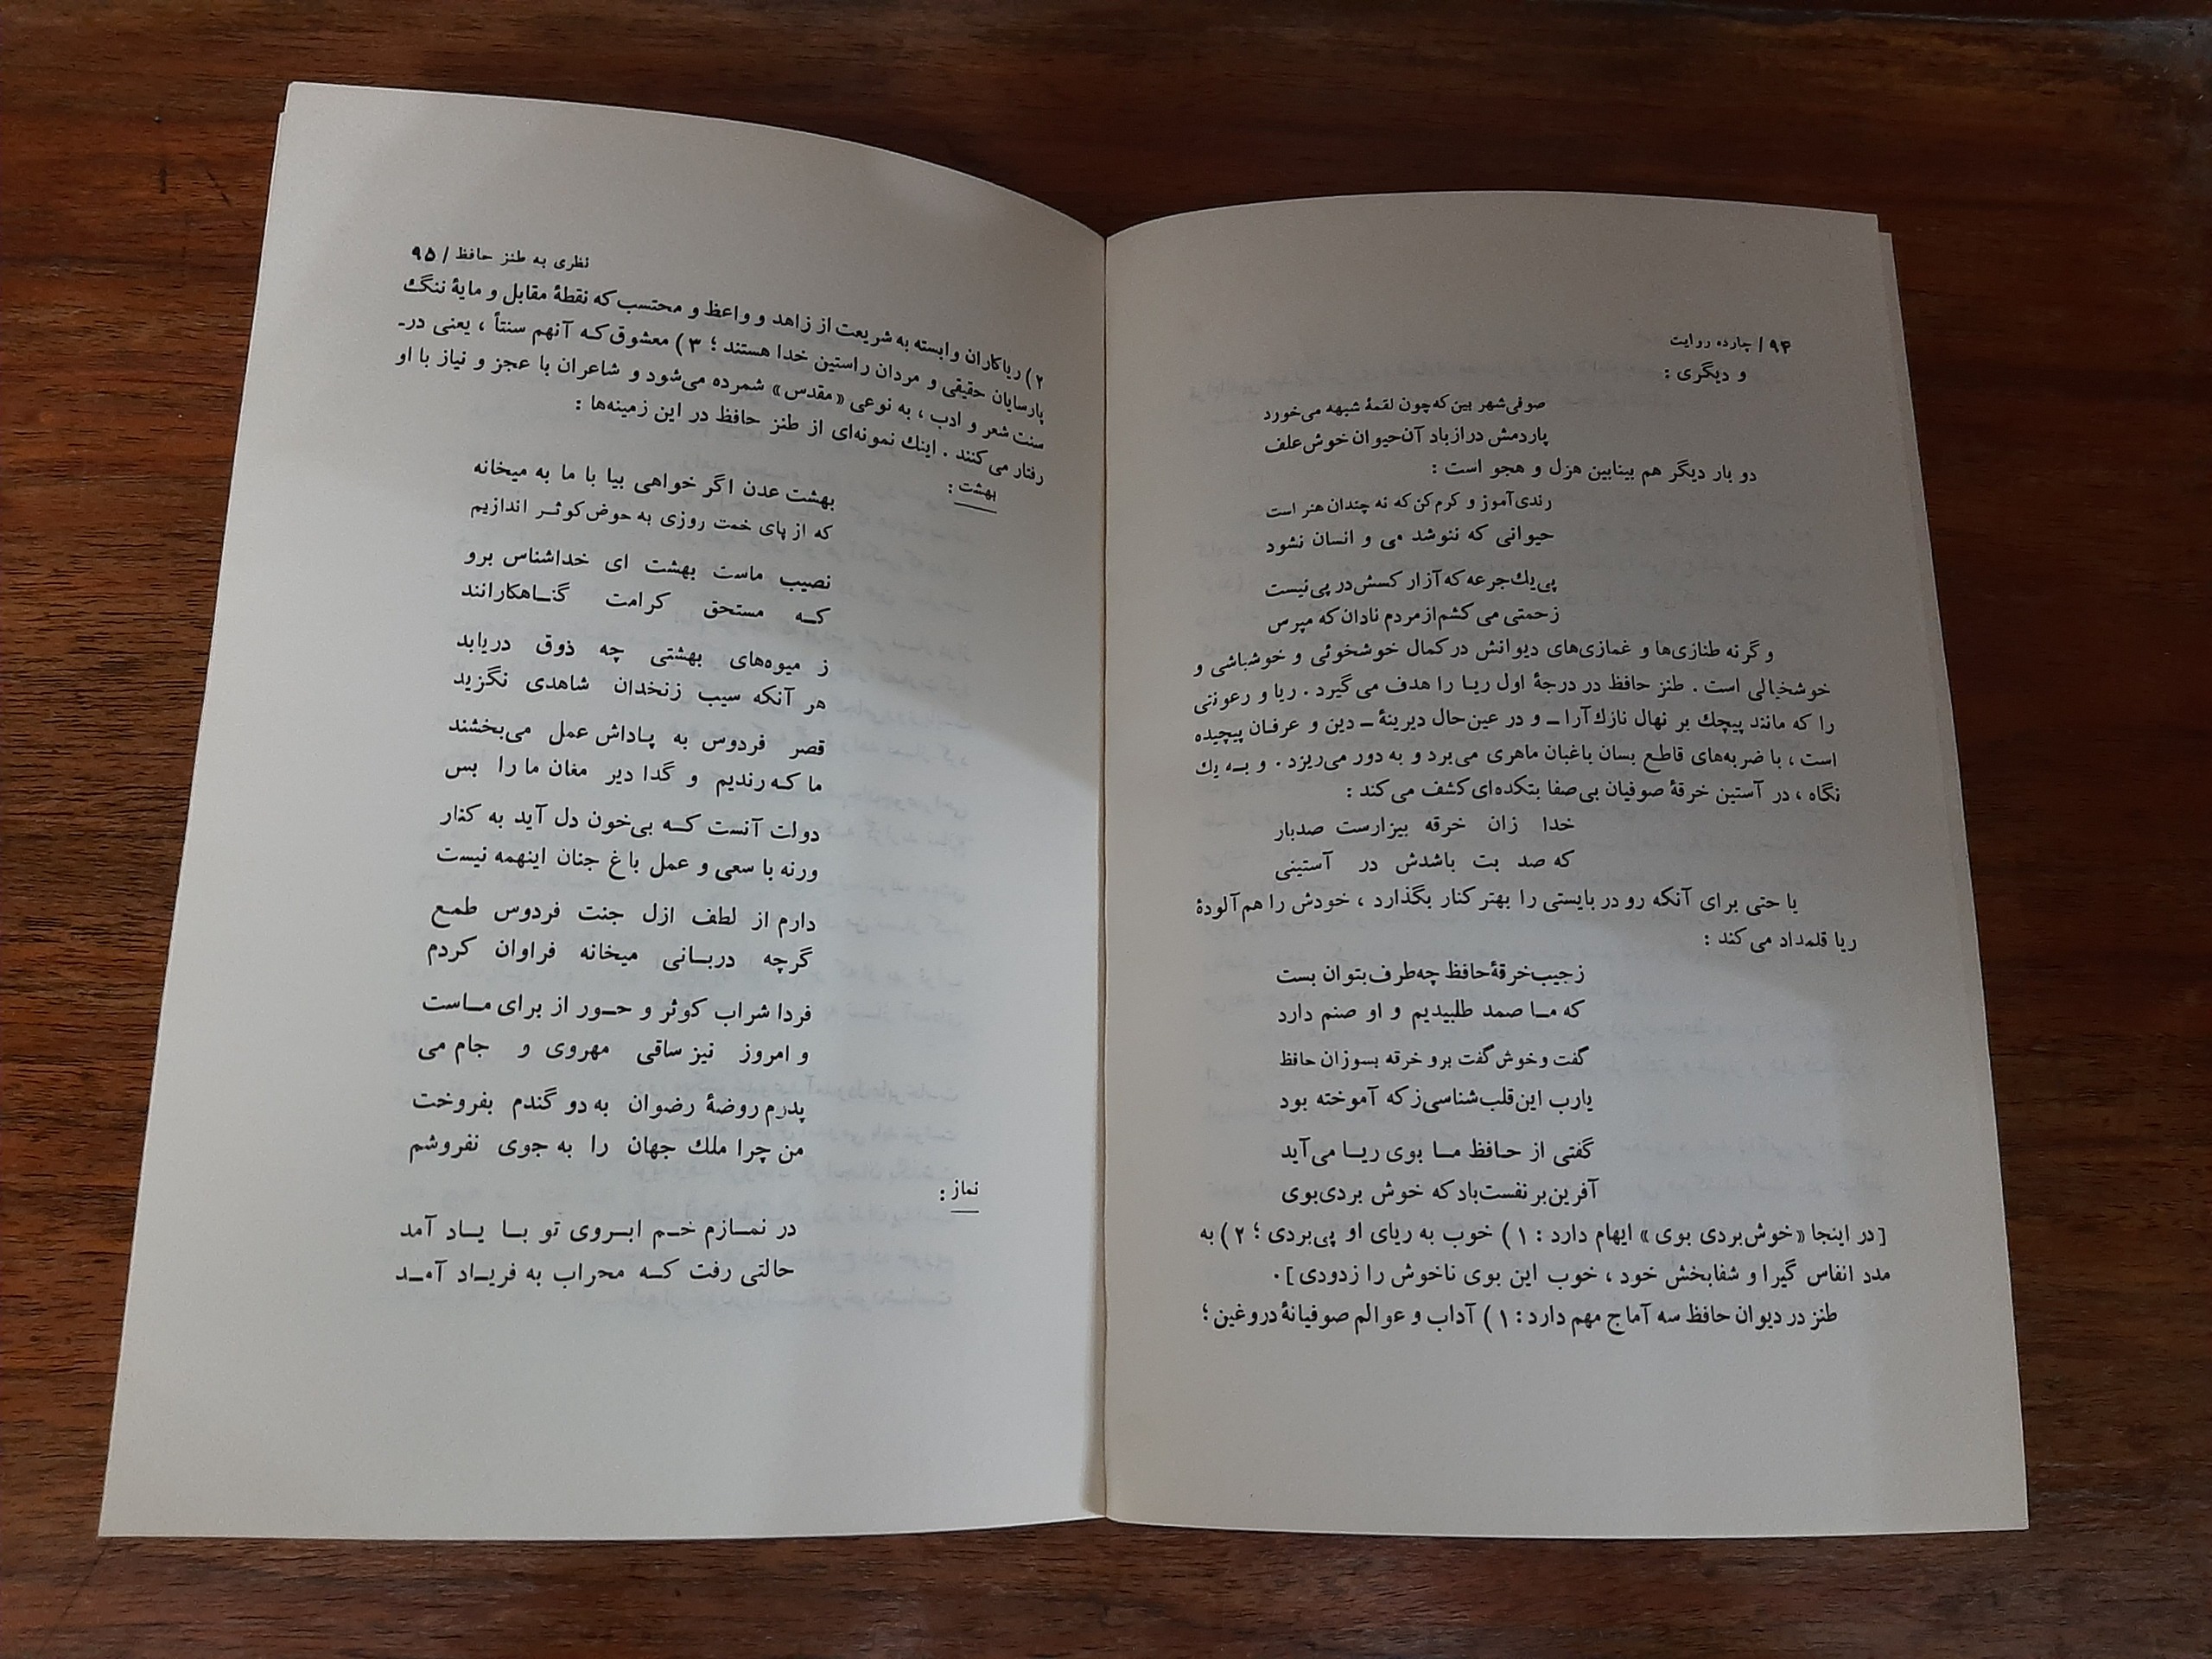 ۹۴/ چارده روایت
و دیگری :
صوفی‌شهر بین که‌چون لقمهٔ شبهه می‌خورد
پاردمش درازباد آن‌حیوان خوش‌علف
دو بار دیگر هم بینابین هزل و هجو است :
رندی‌آموز و کرم‌کن‌که نه چندان هنر است
حیوانی که ننوشد می و انسان نشود
پی‌یك‌جرعه‌که‌آزار کسش‌در پی‌نیست
زحمتی می‌کشم‌ازمردم نادان‌که مپرس
و گرنه طنازی‌ها و غمازی‌های دیوانش در کمال خوشخوئی و خوشباشی و
خوشخیالی است . طنز حافظ در درجهٔ اول ریا را هدف می‌گیرد . ریا و رعونتی
را که مانند پیچك بر نهال نازك‌آرا ــ و در عین‌حال دیرینهٔ ــ دین و عرفان پیچیده
است ، با ضربه‌های قاطع بسان باغبان ماهری می‌برد و به دور می‌ریزد . و بــه یك
نگاه ، در آستین خرقهٔ صوفیان بی‌صفا بتکده‌ای کشف می‌کند :
خدا زان خرقه بیزارست صدبار
که صد بت باشدش در آستینی
یا حتی برای آنکه رودربایستی را بهتر کنار بگذارد ، خودش را هم‌آلودهٔ
ریا قلمداد می‌کند :
زجیب‌خرقهٔ‌حافظ چه‌طرف‌بتوان بست
که مــا صمد طلبیدیم و او صنم دارد
گفت وخوش‌گفت برو خرقه بسوزان حافظ
یارب این‌قلب‌شناسی‌زکه آموخته بود
گفتی از حـافظ مــا بوی ریــا می‌آید
آفرین‌بر نفست‌بادکه خوش بردی‌بوی
[در اینجا «خوش‌بردی بوی» ایهام دارد : ۱) خوب به ریای او پی‌بردی ؛ ۲) به
مدد انفاس گیرا و شفابخش خود ، خوب این بوی ناخوش را زدودی].
طنز در دیوان حافظ سه آماج مهم دارد : ۱) آداب و عوالم صوفیانهٔ دروغین ؛
نظری به طنز حافظ / ۹۵
۲) ریاکاران وابسته به شریعت از زاهد و واعظ و محتسب که نقطهٔ مقابل و مایهٔ ننگ
پارسایان حقیقی و مردان راستین خدا هستند ؛ ۳) معشوق‌کـه آنهم سنتاً ، یعنی در-
سنت شعر و ادب ، به نوعی «مقدس» شمرده می‌شود و شاعران با عجز و نیاز با او
رفتار می‌کنند . اینك نمونه‌ای از طنز حافظ در این زمینه‌ها :
بهشت :
بهشت عدن اگر خواهی بیا با ما به میخانه
که از پای خمت روزی به حوض‌کوثــر اندازیم
نصیب ماست بهشت ای خداشناس برو
کــه مستحق کرامت گنــاهکارانند
ز میوه‌های بهشتی چه ذوق دریابد
هر آنکه سیب زنخدان شاهدی نگزید
قصر فردوس به پـاداش عمل می‌بخشند
ما کـه رندیم و گدا دیر مغان ما را بس
دولت آنست کــه بی‌خون دل آید به کنار
ورنه با سعی و عمل باغ جنان اینهمه نیست
دارم از لطف ازل جنت فردوس طمـع
گرچه دربــانی میخانه فراوان کردم
فردا شراب کوثر و حــور از برای مــاست
و امروز نیز ساقی مهروی و جام می
پدرم روضهٔ رضوان به دو گندم بفروخت
من چرا ملك جهان را به جوی نفروشم
نماز :
در نمــازم خــم ابــروی تو بــا یــاد آمد
حالتی رفت کــه محراب به فریــاد آمــد